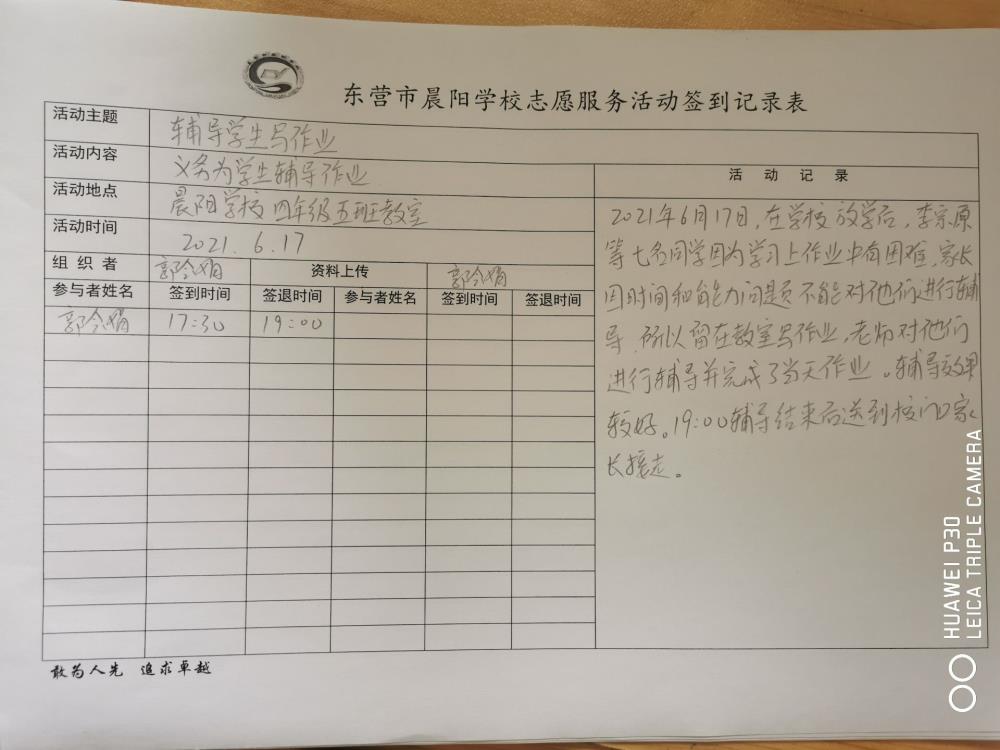 东营市晨阳学校志愿服务活动签到记录表
活动主题 辅导学生写作业
活动内容 义务为学生辅导作业
活动地点 晨阳学校四年级五班教室
活动时间 2021.6.17
组织者 郭令娟 资料上传 郭令娟
参与者姓名 签到时间 签退时间 参与者姓名 签到时间 签退时间
郭令娟 17:30 19:00
活动记录
2021年6月17日,在学校放学后,李宗原
等七名同学因为学习上作业中有困难,家长
因时间和能力问题不能对他们进行辅
导,所以留在教室写作业,老师对他们
进行辅导并完成了当天作业。辅导效果
较好。19:00辅导结束后送到校门口家
长接走。
敢为人先 追求卓越
HUAWEI P30
LEICA TRIPLE CAMERA